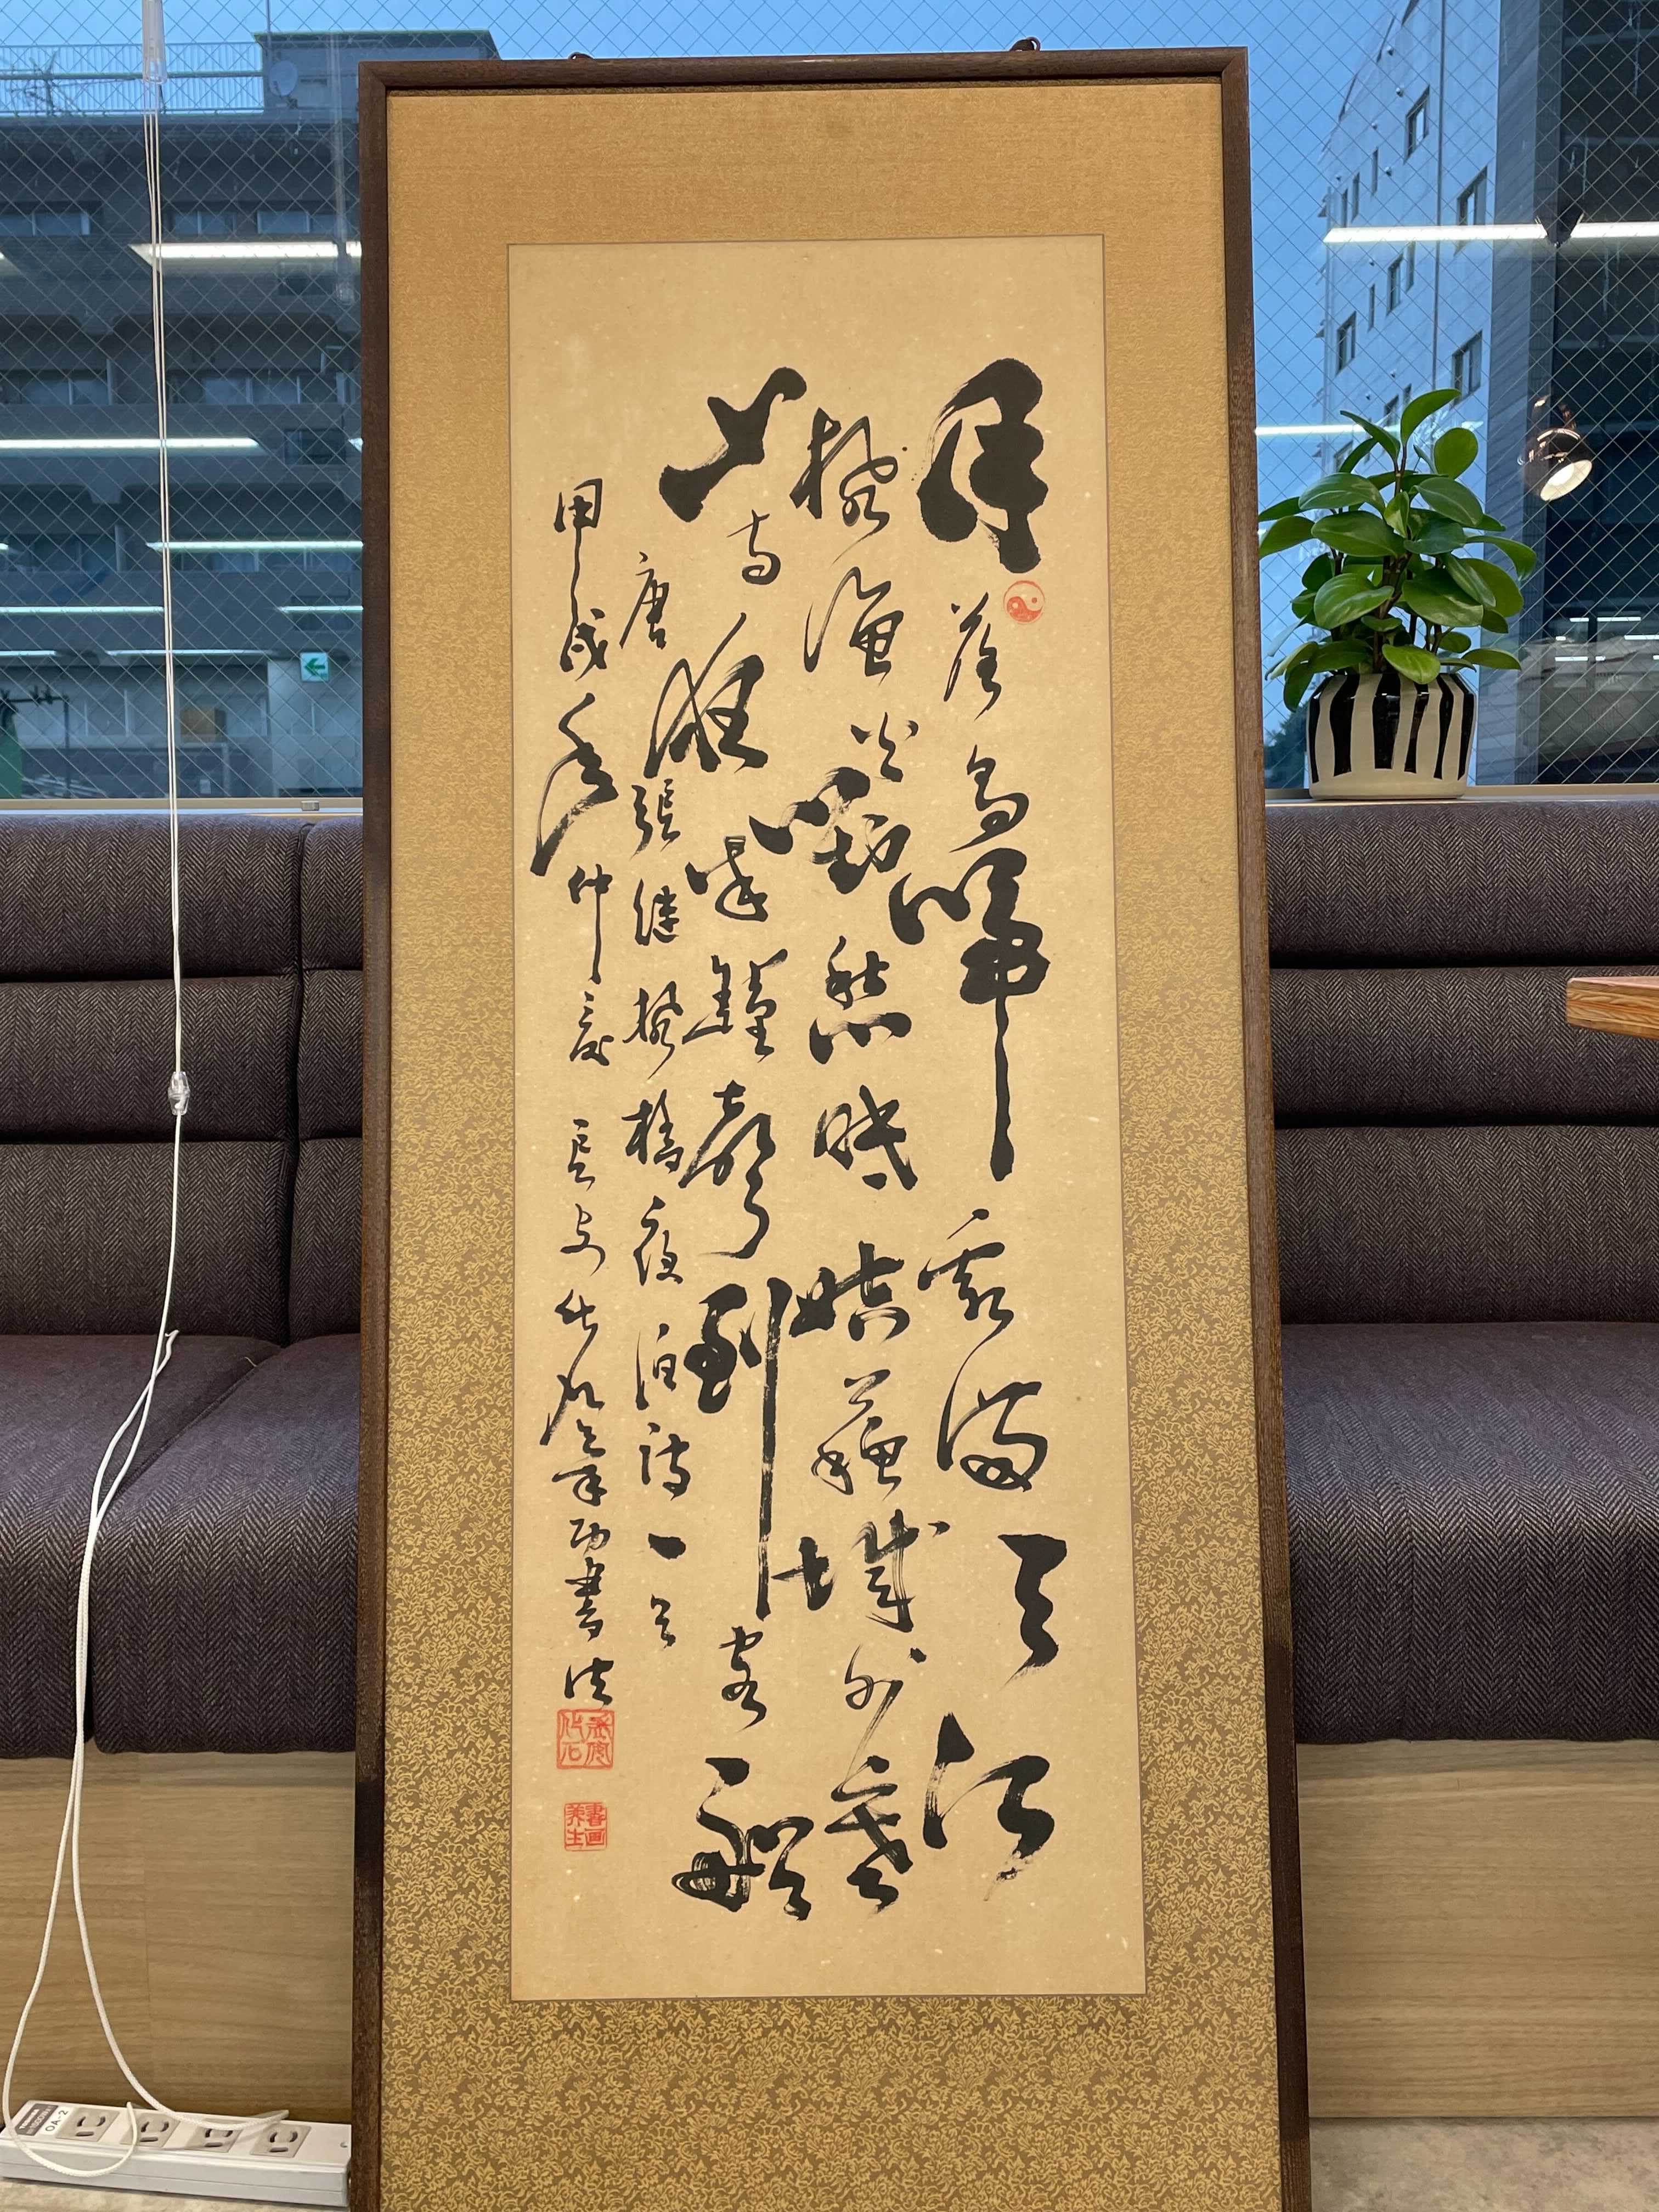 月落烏啼霜滿天江
楓漁火對愁眠姑蘇城外寒
山寺夜半鐘聲到客船
唐張継楓橋夜泊詩一首
甲戌年仲夏 長安 功書法
書画养生
OA-2